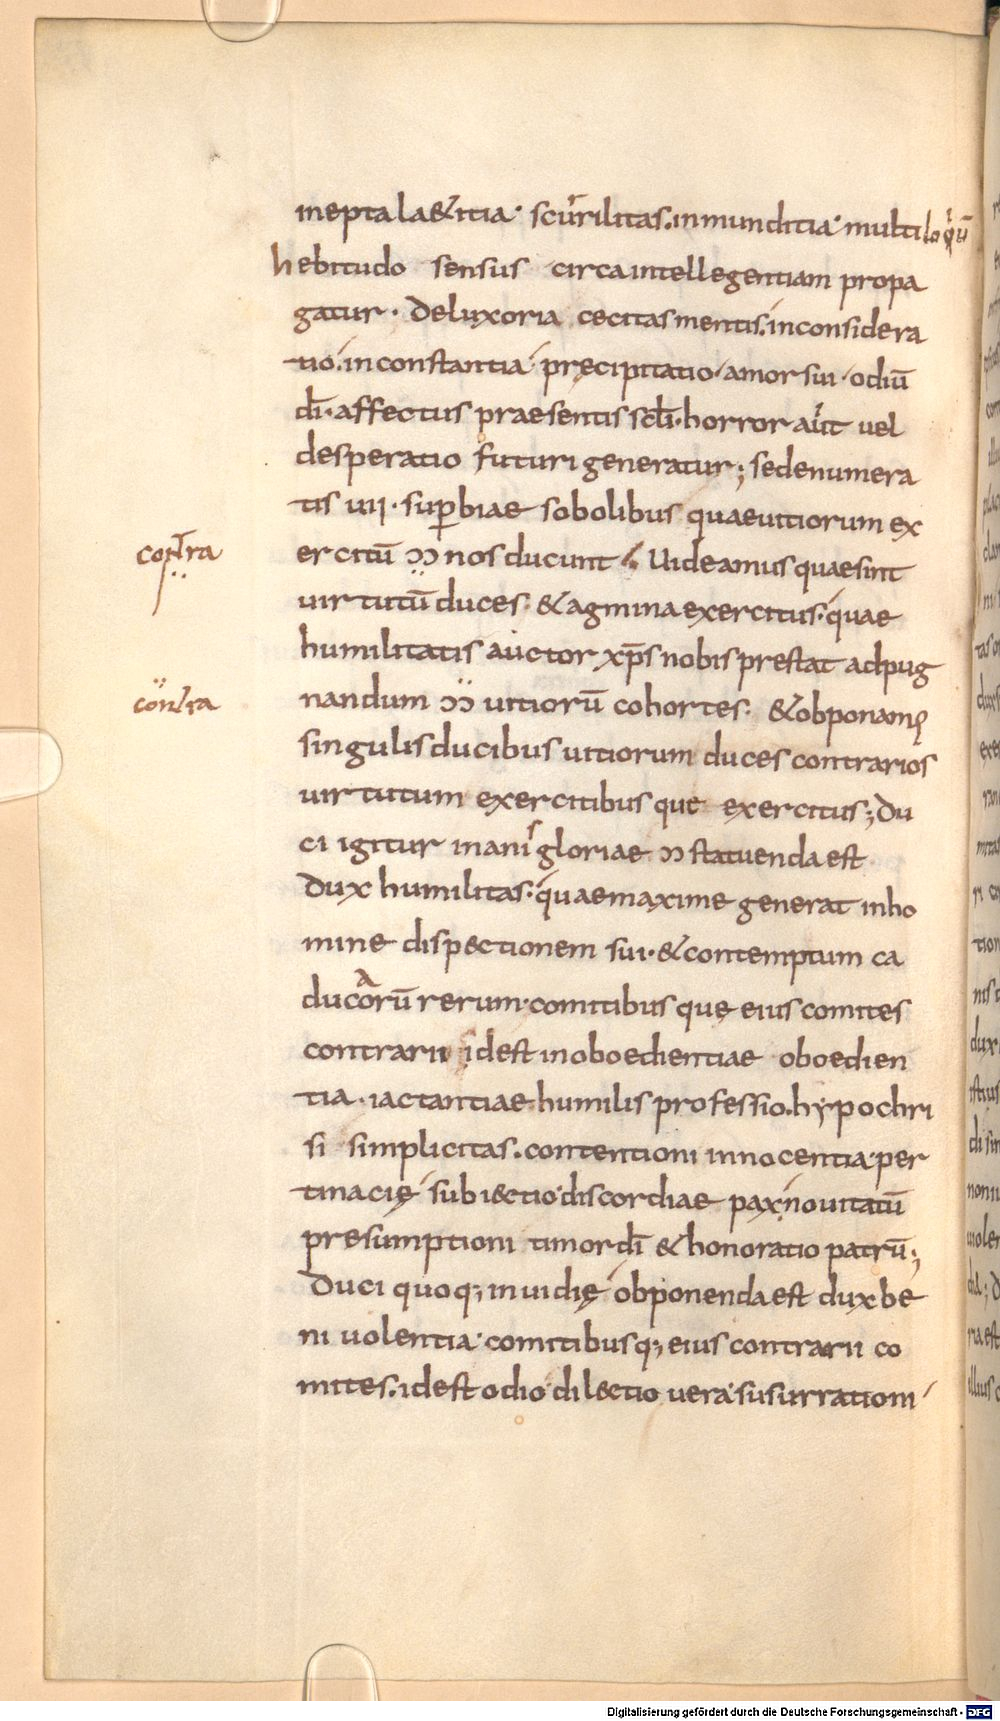 inepta la&itia· scurrilitas. inmunditia· multiloq̄ū
hebitudo sensus circa intellegentiam propa
gatur· De luxoria cecitas mentis. inconsidera
tio. inconstantia· precipitatio· amor sui· odiū
dī· affectus praesentis sc̄li· horror aut uel
desperatio futuri generatur; sed enumera
tis uii· sup̱biae sobolibus quae uitiorum ex
contra
ercitū ɔɔ nos ducunt· Uideamus quae sint
uirtutū duces· & agmina exercitus· quae
humilitatis auctor xp̄s nobis prestat adpug
contra
nandum ɔɔ uitiorū cohortes· & obponamꝰ
singulis ducibus uitiorum duces contrarios
uirtutum exercitibusque exercitus; Du
ci igitur inanis gloriae ɔ statuenda est
dux humilitas· quae maxime generat in ho
mine disp&ctionem sui· & contemptum ca
ducorū rerum· comitibusque eius comites
contrarii id est inoboedientiae oboedien
tia· iactantiae humilis professio. hypochri
si simplicitas. contentioni innocentia· per
tinacię subi&ctio· discordiae pax· nouitatū
presumptioni timor dī & honoratio patrū;
Duci quoq; inuidię obponenda est dux be
niuolentia· comitibusq; eius contrarii co
mites. id est odio dil&ctio uera· susurrationi
Digitalisierung gefördert durch die Deutsche Forschungsgemeinschaft - DFG